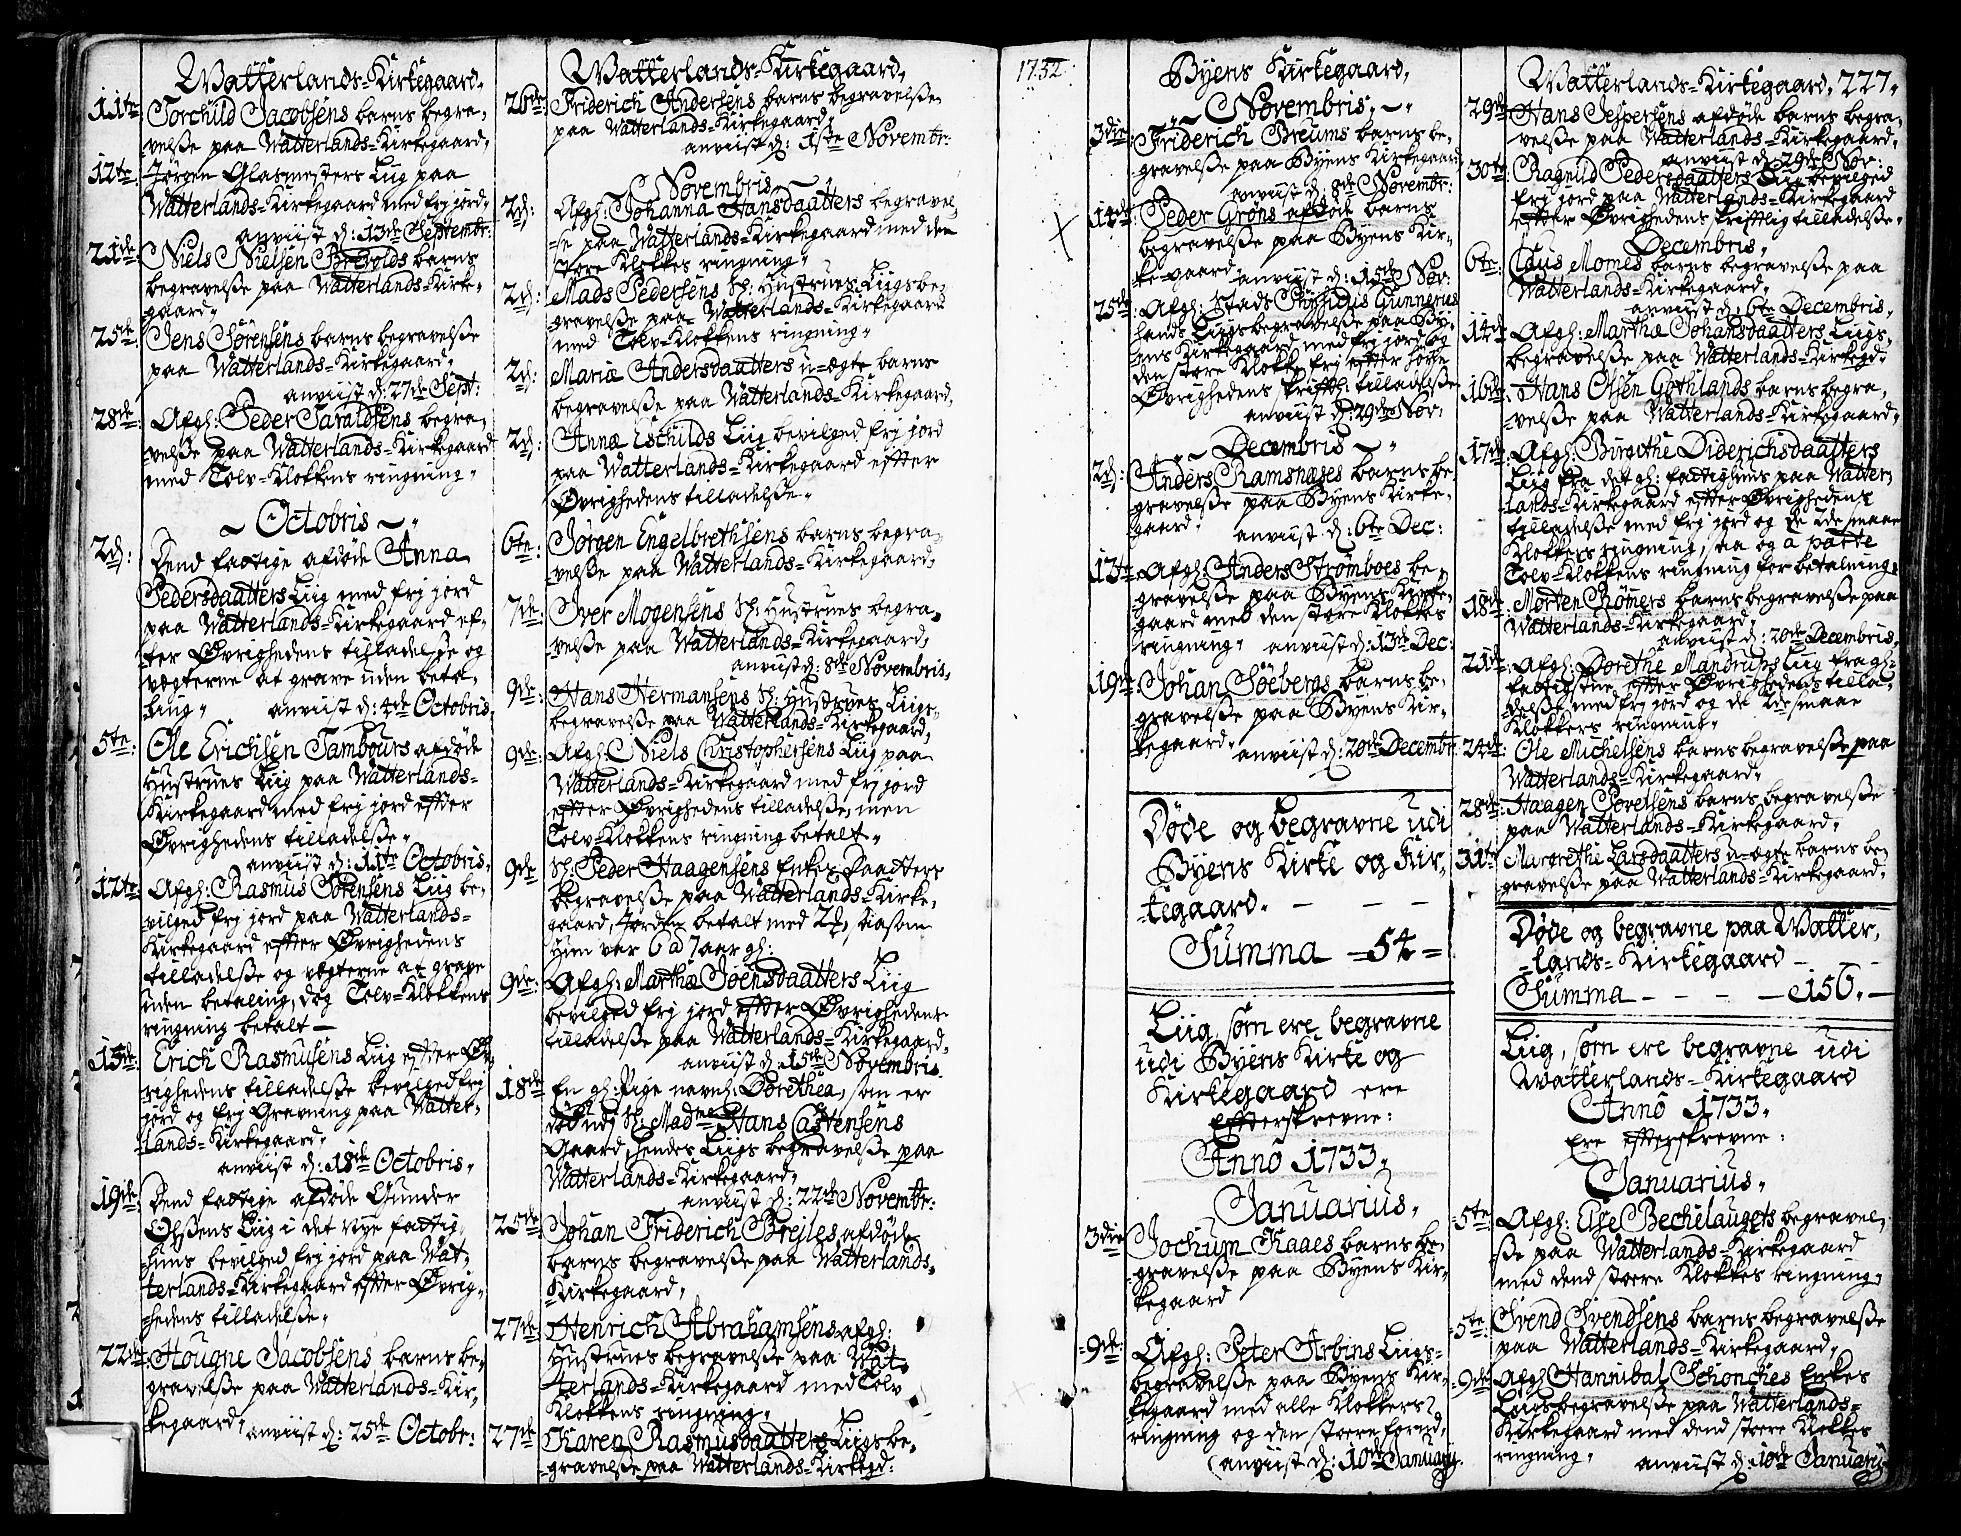 Watterlands-Kirkegaard,
11te Torchild Jacobsens barns begra-
velse paa Watterlands-Kirkegaard,
12te Jörgen Glasmesters Liig paa
Watterlands-Kirkegaard med fry jord,
anviist d: 13de Septembr:
21de Niels Nielsen barns
begravelße paa Watterlands-Kirke-
gaard,
25de Jens Sörensens barns begravelße
paa Watterlands-Kirkegaard,
anviist d: 27de Sept:
28de Afgl: Peder Taraldsens begra-
velße paa Watterlands-Kirkegaard
med Tolv-Klokkens ringning,
~ Octobris ~
2d: Dend fattige afdöde Anna
Pedersdaatters Liig med fry jord
paa Watterlands-Kirkegaard ef-
ter Övrighedens tilladelße og
vegterne at grave uden beta-
ling, anviist d: 4de Octobris,
5te Ole Erichsen Tambours afdöde
Hustrues Liig paa Watterlands-
Kirkegaard med fry jord efter
Övrighedens tilladelße,
anviist d: 11te Octobris,
12te Afgl: Rasmus Sörensens Liig be-
vilged fry jord paa Watterlands-
Kirkegaard effter Övrighedens
tilladelße og vegterne at grave
uden betaling, dog Tolv-Klokkens
ringning betalt —
15de Erich Rasmusens Liig effter Öv-
righedens tilladelße bevilged fry
jord og fry Gravning paa Watter-
lands-Kirkegaard,
anviist d: 18de Octobris,
19de Dend fattige afdöde Gunder
Olßens Liig i det nye fattig-
huus bevilged fry jord paa Wat-
terlands-Kirkegaard effter Övrig-
hedens tilladelße,
22de Hougne Jacobsens barns be-
gravelße paa Watterlands-Kir-
kegaard, anviist d: 25de Octobr:
Watterlands-Kirkegaard,
26de Friderich Andersens barns begravelße
paa Watterlands-Kirkegaard,
anviist d: 1ste Novembr:
Novembris ~
2d: Afgl: Johanna Hansdaatters begravel-
se paa Watterlands-Kirkegaard med den
store Klokkes ringning,
2d: Mads Pedersens Sl: Hustrues Liigs be-
gravelße paa Watterlands-Kirkegaard
med Tolv-Klokkens ringning,
2d: Mariæ Andersdaatters u-ægte barns
begravelße paa Watterlands-Kirkegaard,
2d: Anna Eschilds Liig bevilged fry jord
paa Watterlands-Kirkegaard effter
Övrighedens tilladelße,
6te: Jörgen Engelbrethsens barns begra-
velße paa Watterlands-Kirkegaard,
7de Iver Mogensens Sl: Hustrues begra-
velße paa Watterlands-Kirkegaard,
anviist d: 8de Novembris,
9de: Hans Hermansens Sl: Hustrues Liigs-
begravelße paa Watterlands-Kirkegaard,
9de: Afgl: Niels Christophersens Liig paa
Watterlands-Kirkegaard med fry jord
effter Övrighedens tilladelße, men
Tolv-Klokkens ringning betalt,
9de Sl: Peder Haagensens Enkes Daatters
begravelße paa Watterlands-Kirke-
gaard, Jorden betalt med
Hun var 6 a 7 aar gl:
9de: Afgl: Marthæ Joensdaatters Liig
bevilged fry jord effter Övrighedens
tilladelße paa Watterlands-Kirkegaard,
anviist d: 15de Novembris
18de En gl: Pige navnl: Dorethea, som er
död udj Sl: Madme Hans Castensens
Gaard, hendes Liigs begravelße paa
Watterlands-Kirkegaard,
anviist d: 22de Novembr:
25de Johan Friderich Breiles afdöde
barns begravelße paa Watterlands-
Kirkegaard,
27de Henrich Abrahamsens afgl:
Hustrues begravelße paa Wat-
terlands-Kirkegaard med Tolv
Klokkens ringning,
27de Karen Rasmusdaatters Liigs be-
gravelße paa Watterlands-Kirkegd:
1732
Byens Kirkegaard,
~ Novembris, ~
3die Friderich Breums barns be-
gravelße paa Byens Kirkegaard
anviist d: 8de Novembr:
14de Peder Gröns afdöde barns
begravelße paa Byens Kir-
ke-gaard anviist d: 15de Nov:
25de Afgl: Stads Physicus Gunnerus
lands Liigsbegravelße paa By-
ens Kirkegaard med fry jord og
den store Klokke fry effter höye
Övrighedens skrifftl: tilladelße
anviist d: 29de Nov:
~ Decembris ~
2d: Anders Ramshæses barns be-
gravelße paa Byens Kirke-
gaard, anviist d: 6te Dec:
13te Afgl: Anders Stromboes be-
gravelße paa Byens Kirke-
gaard med den store Klokkes
ringning, anviist d: 13de Dec:
19de Johan Söebergs barns be-
gravelße paa Byens Kir-
kegaard, anviist d: 20de Decembr:
Döde og begravne udi
Byens Kirke og Kir-
kegaard. — — —
Summa =54=
Liig, som ere begravne
udi Byens Kirke og
Kirkegaard ere
Effterskrevne:
Anno 1733,
Januarius,
3die Jochum Kaaes barns be-
gravelße paa Byens Kir-
kegaard
9de: Afgl: Peter Arbins Liigs-
begravelße paa Byens Kir-
kegaard med alle Klokkers
ringning og den store forud,
(anviist d: 10de Januarij.
Watterlands-Kirkegaard, 227,
29de Hans Jespersens afdöde barns begra-
velße paa Watterlands-Kirkegaard,
anviist d: 29de Nov:
30te Ragnild Pedersdaatters Liig bevilged
fry jord paa Watterlands-Kirkegaard
effter Övrighedens skrifftlig tilladelße.
Decembris,
6te: Claus Momes barns begravelße paa
Watterlands-Kirkegaard,
anviist d: 6te Decembris,
14de Afgl: Marthæ Johansdaatters Liigs-
begravelße paa Watterlands-Kirkegd:
16de: Hans Olsen Gothlands barns begra-
velße paa Watterlands-Kirkegaard,
17de Afgl: Birgithe Diderichsdaatters
Liig fra det gl: fattighuus paa Watter-
lands-Kirkegaard effter Övrighedens
tilladelße med fry jord og de 2de smaae
Klokkers ringning, saa og a parte
Tolv-Klokkens ringning for betalning,
18de Morten Römers barns begravelße paa
Watterlands-Kirkegaard,
anviist d: 20de Decembris,
21de Afgl: Dorethe Mandrups Liig fra gl:
effter Övrighedens tilla-
delße med fry jord og de 2de smaae
Klokkers ringning,
24de: Ole Michelsens barns begravelße paa
Watterlands-Kirkegaard,
28de: Haagen barns begravelße
paa Watterlands-Kirkegaard,
31te Margrethe Larsdaatters u-ægte barns be-
gravelße paa Watterlands-Kirkegaard,
Döde og begravne paa Watter-
lands-Kirkegaard — —
Summa — — — — 156. —
Liig, som ere begravne udi
Watterlands-Kirkegaard
Anno 1733.
Ere effterskrevne:
Januarius,
5te: Afgl: Else Bechelaugets begravel-
ße paa Watterlands-Kirkegaard
med dend store Klokkes ringning,
5te: Svend Svendsens barns begravelße
paa Watterlands-Kirkegaard,
9de Afgl Hannibal Schönches Enkes
Liigsbegravelße paa Watterlands-
Kirkegaard med dend store Klokkes
ringning, anviist d: 10de Januarij